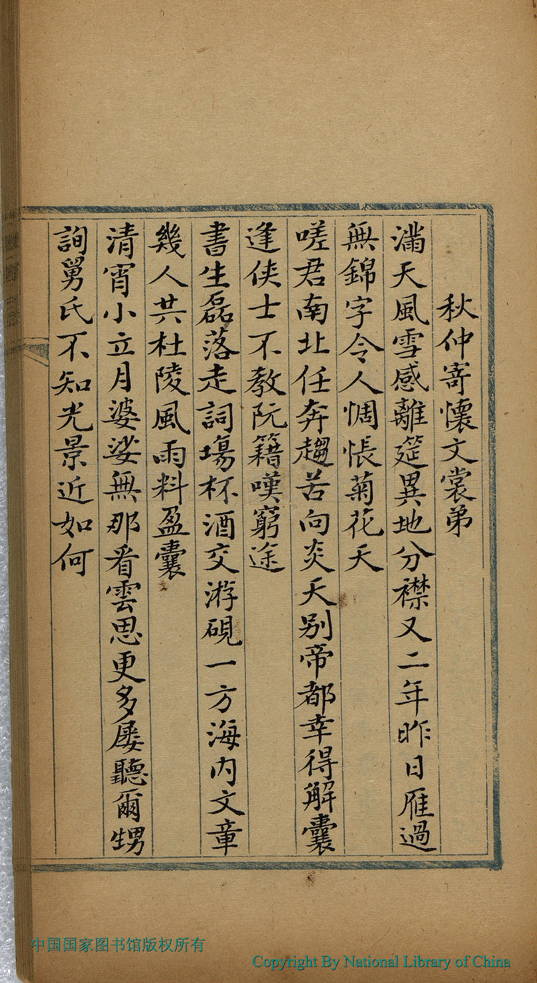 秋仲寄懷文裳弟
滿天風雪感離筵異地分襟又二年昨日雁過
無錦字令人惆悵菊花天
嗟君南北任奔趨苦向炎天别帝都幸得解囊
逢俠士不教阮籍嘆窮途
書生磊落走詞塲杯酒交游硯一方海内文章
幾人共杜陵風雨料盈囊
清宵小立月婆娑無那看雲思更多屡聽爾甥
詢舅氏不知光景近如何
中国国家图书馆版权所有
Copyright By National Library of China